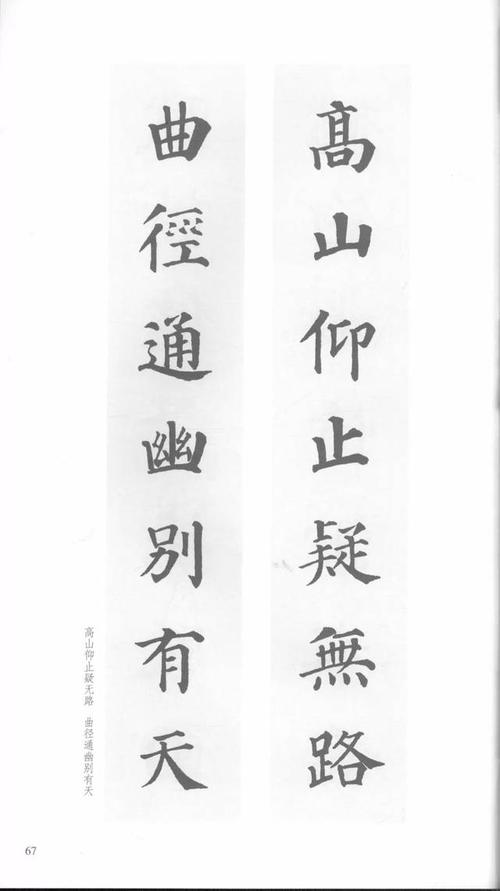 高山仰止疑無路
曲徑通幽别有天
高山仰止疑无路 曲径通幽别有天
67